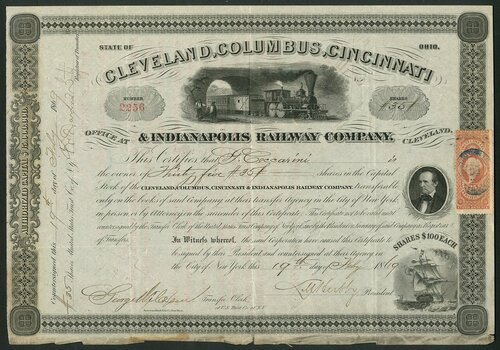 STATE OF OHIO.
CLEVELAND, COLUMBUS, CINCINNATI
NUMBER
2256
SHARES
35
OFFICE AT & INDIANAPOLIS RAILWAY COMPANY, CLEVELAND,
This Certifies that is
the owner of Thirty five *35* shares in the Capital
Stock of the CLEVELAND, COLUMBUS, CINCINNATI & INDIANAPOLIS RAILWAY COMPANY, transferable
only on the books of said Company at their Transfer Agency in the City of New York
in person or by Attorney on the surrender of this Certificate. This Certificate not to be valid until
countersigned by the Transfer Clerk of the United States Trust Company of New York
of Transfer.
In Witness whereof, the said Corporation have caused this Certificate to
be signed by their President and countersigned at their Agency in
the City of New York this 19th day of July 1869
Transfer Clerk
President
SHARES $100 EACH
AUTHORIZED CAPITAL
Countersigned this 19th day of July 1869
35 Shares United States Trust Comp'y of N.Y.